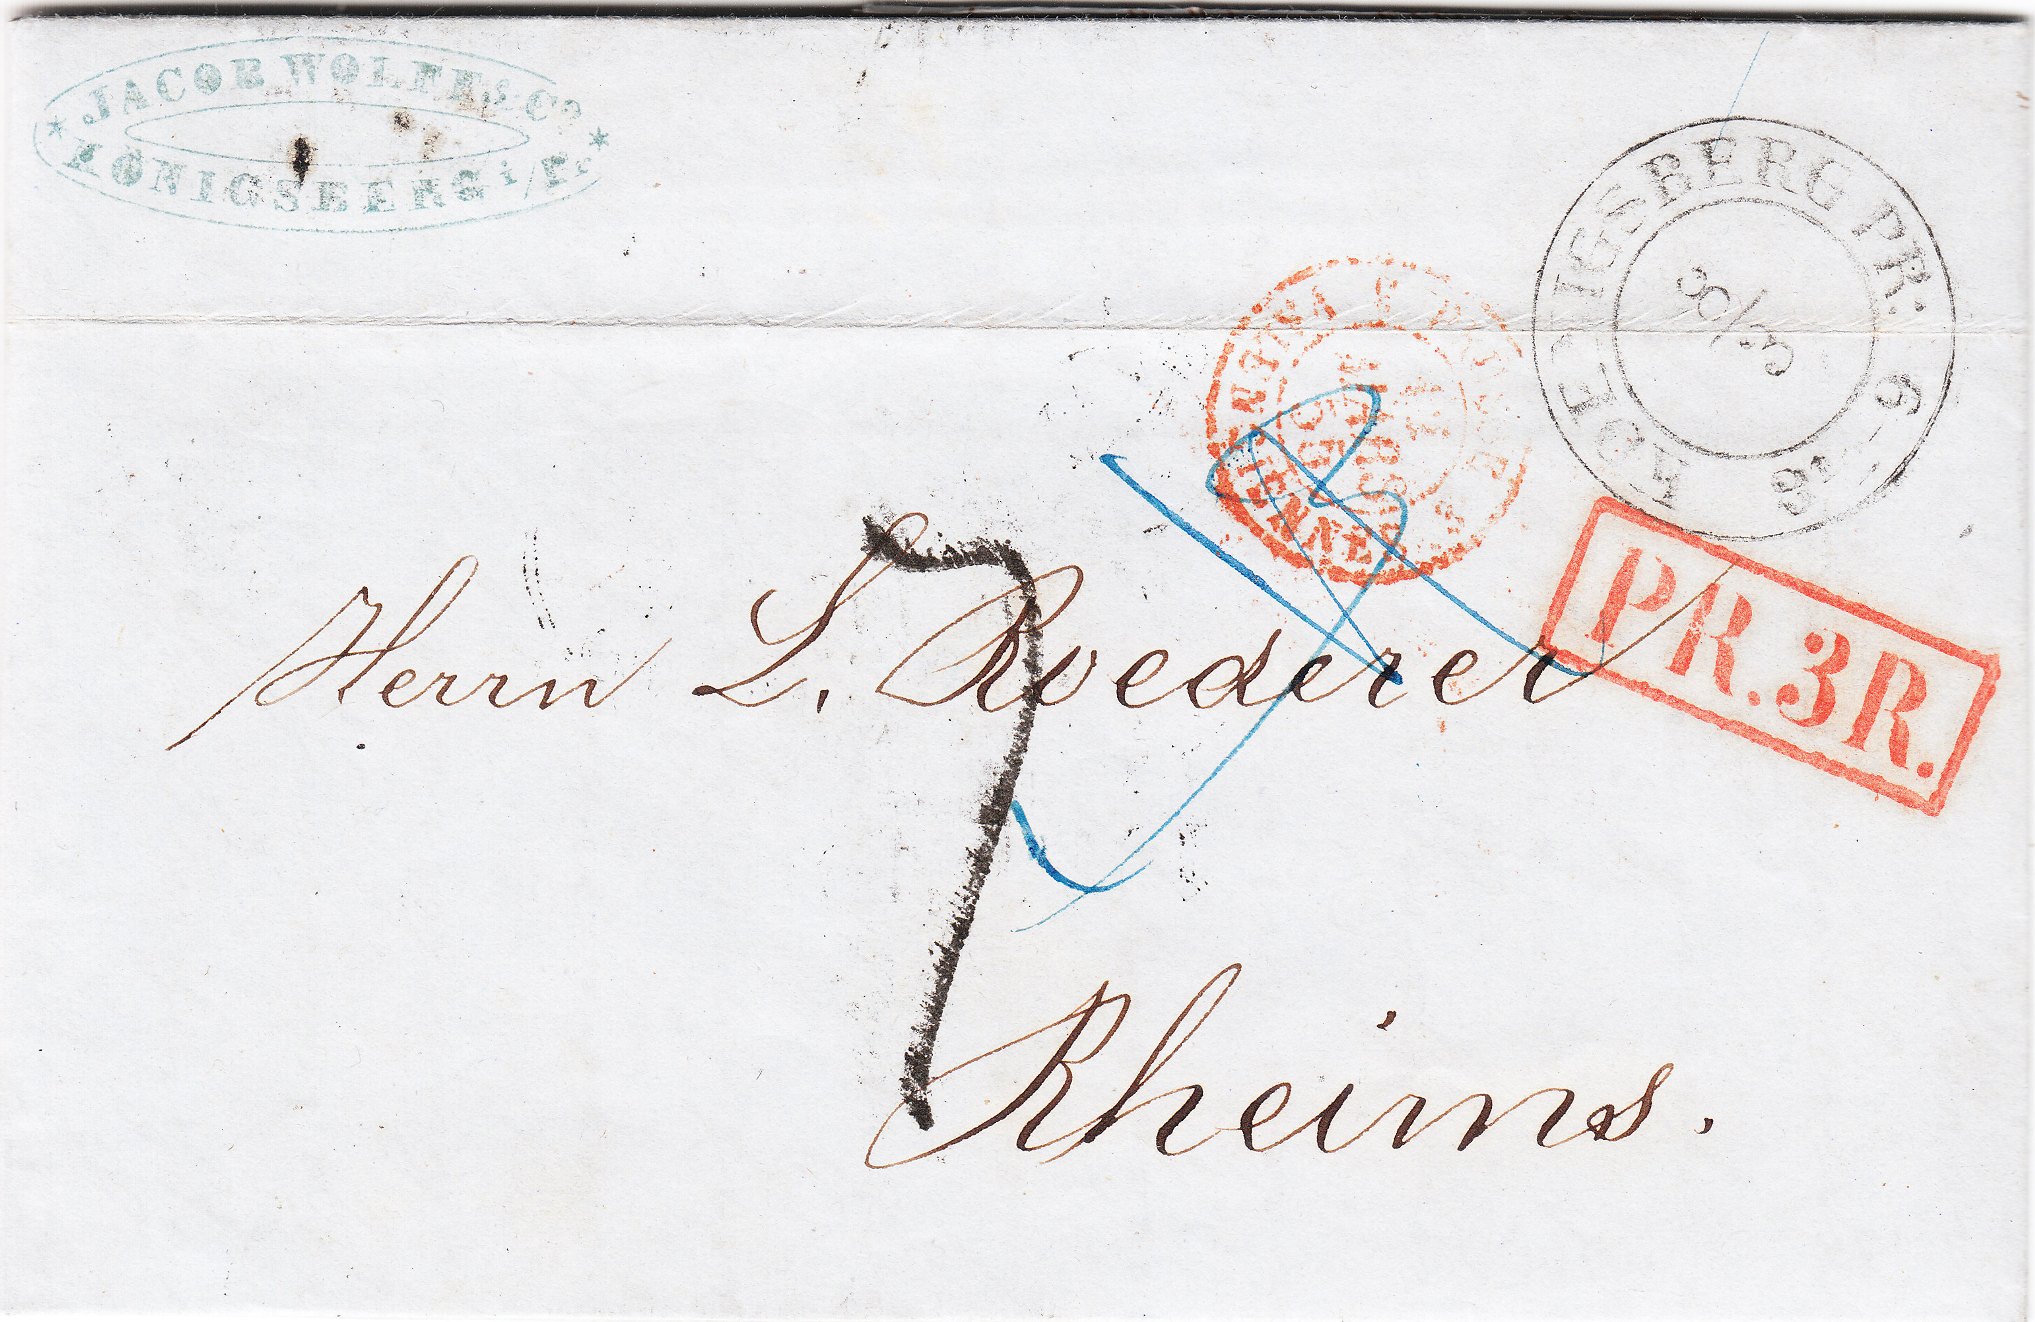 JACOB WOLFF & Co
KÖNIGSBERG i/Pr
KOENIGSBERG PR.
30/3
PR. 3 R.
7
Herrn L. Roederer
Rheims.